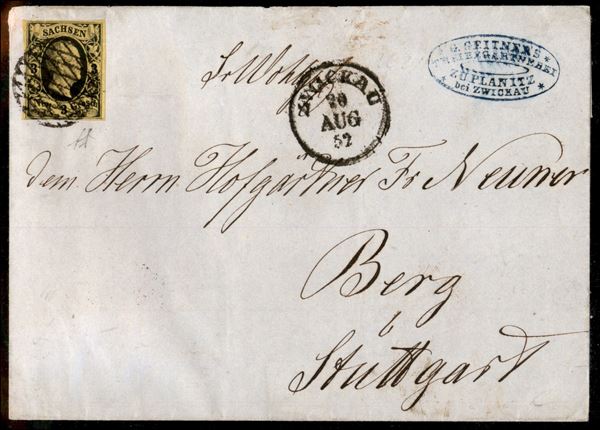 SACHSEN
Sr Wohlg
ZWICKAU
20
AUG
52
G. GEITNER'S
TREIBGÄRTNEREI
ZU PLANITZ
* bei ZWICKAU *
dem Herrn Hofgärtner Fr Neuner
Berg
b
Stuttgart